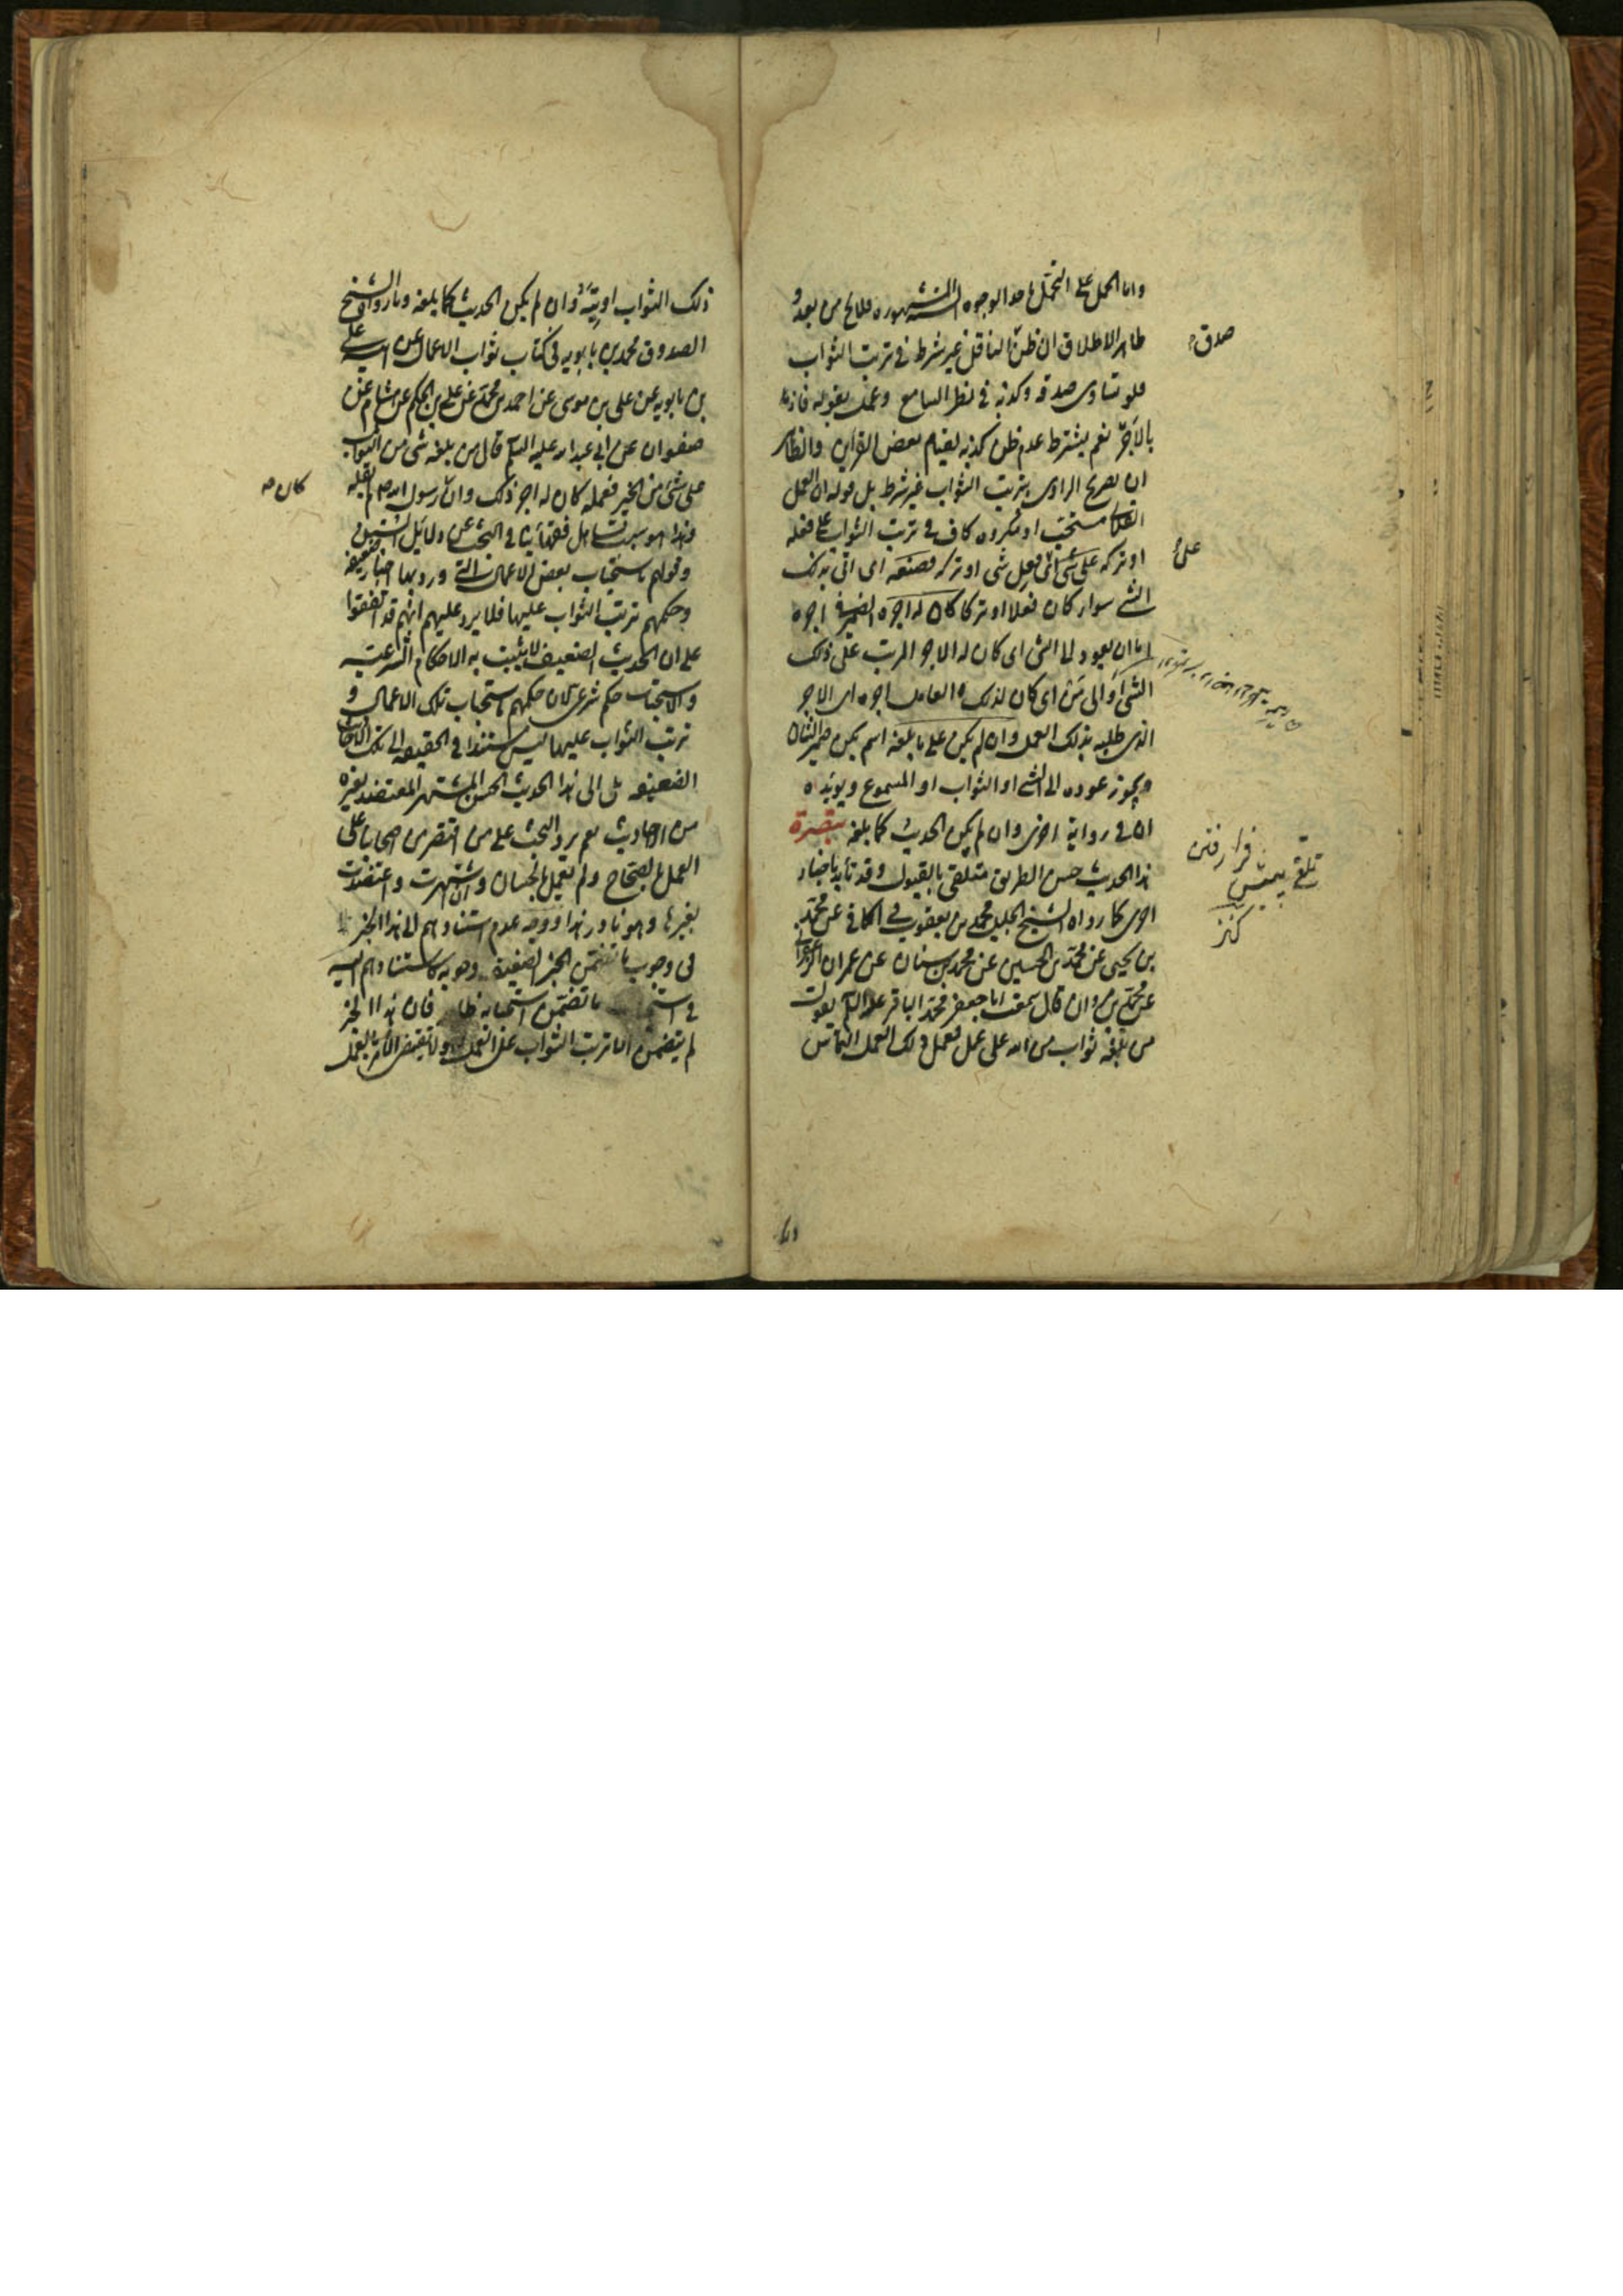 واما الحمل على التحمل باحد الوجوه المشهورة فلا يخ من بعد و
ظاهر الاطلاق ان ظن الناقل غير شرط في ترتب الثواب
صدق
فلو تساوى صدقه وكذبه في نظر السامع وعمل بقوله فاز
بالاجر نعم يشترط عدم ظن كذبه لقيام بعض القراين والظاهر
ان تصريح الراوى بترتب الثواب غير شرط بل قوله ان العمل
الفلانى مستحب او مكروه كاف في ترتب الثواب على فعله
او تركه على شئ اى فعل شى او تركه فصنعه اى اتى بذلك
على
الشئ سواء كان فعلا او تركا كان له اجره الضمير في اجره
اما ان يعود الى الشئ اى كان له الاجر المرتب على ذلك
الشئ او الى من اى كان لذلك العامل اجره اى الاجر
الذى طلبه بذلك العمل وان لم يكن على ما بلغه اسم يكن ضمير الشان
ويجوز عوده الى الشئ او الثواب او المسموع ويؤيده
ان في رواية اخرى وان لم يكن الحديث كما بلغه تبصرة
هذا الحديث حسن الطريق متلقى بالقبول وقد تأيد باخبار
تلقى
فرا رفتن
كنز
اخرى كما رواه الشيخ الجليل محمد بن يعقوب في الكافي عن محمد
بن يحيى عن محمد بن الحسين عن محمد بن سنان عن عمران الزعفرانى
عن محمد بن مروان قال سمعت ابا جعفر محمد الباقر عليه السلم يقول
من بلغه ثواب من الله على عمل فعمل ذلك العمل التماس
ذلك الثواب اوتيه وان لم يكن الحديث كما بلغه وما رواه الشيخ
الصدوق محمد بن بابويه في كتاب ثواب الاعمال عن ابيه على
بن بابويه عن على بن موسى عن احمد بن محمد عن على بن الحكم عن هشام عن
صفوان عن ابى عبد الله عليه السلم قال من بلغه شى من الثواب
على شئ من الخير فعمله كان له اجر ذلك وان رسول الله صلعم لم يقله
كان
وهذا هو سبب تساهل فقهائنا في البحث عن دلائل السنن
وقولهم باستحباب بعض الاعمال التى ورد بها اخبار ضعيفة
وحكمهم بترتب الثواب عليها فلا يرد عليهم انهم قد اتفقوا
على ان الحديث الضعيف لا يثبت به الاحكام الشرعية
والاستحباب حكم شرعى لان حكمهم باستحباب تلك الاعمال و
ترتب الثواب عليها ليس مستندا في الحقيقة الى تلك الاحاديث
الضعيفة بل الى هذا الحديث الحسن المشتهر المعتضد بغيره
من الاحاديث نعم يرد البحث على من اقتصر من اصحابنا على
العمل بالصحاح ولم يعمل بالحسان وان اشتهرت واعتضدت
بغيرها وهو نادر هذا ووجه عدم استنادهم الى هذا الخبر
في وجوب ما تضمن الخبر الضعيف وجوبه كاستنادهم اليه
في ما تضمن استحبابه ظاهر فان هذا الخبر
لم يتضمن الا ترتب الثواب على العمل ولا يقتضى الامر بالعمل